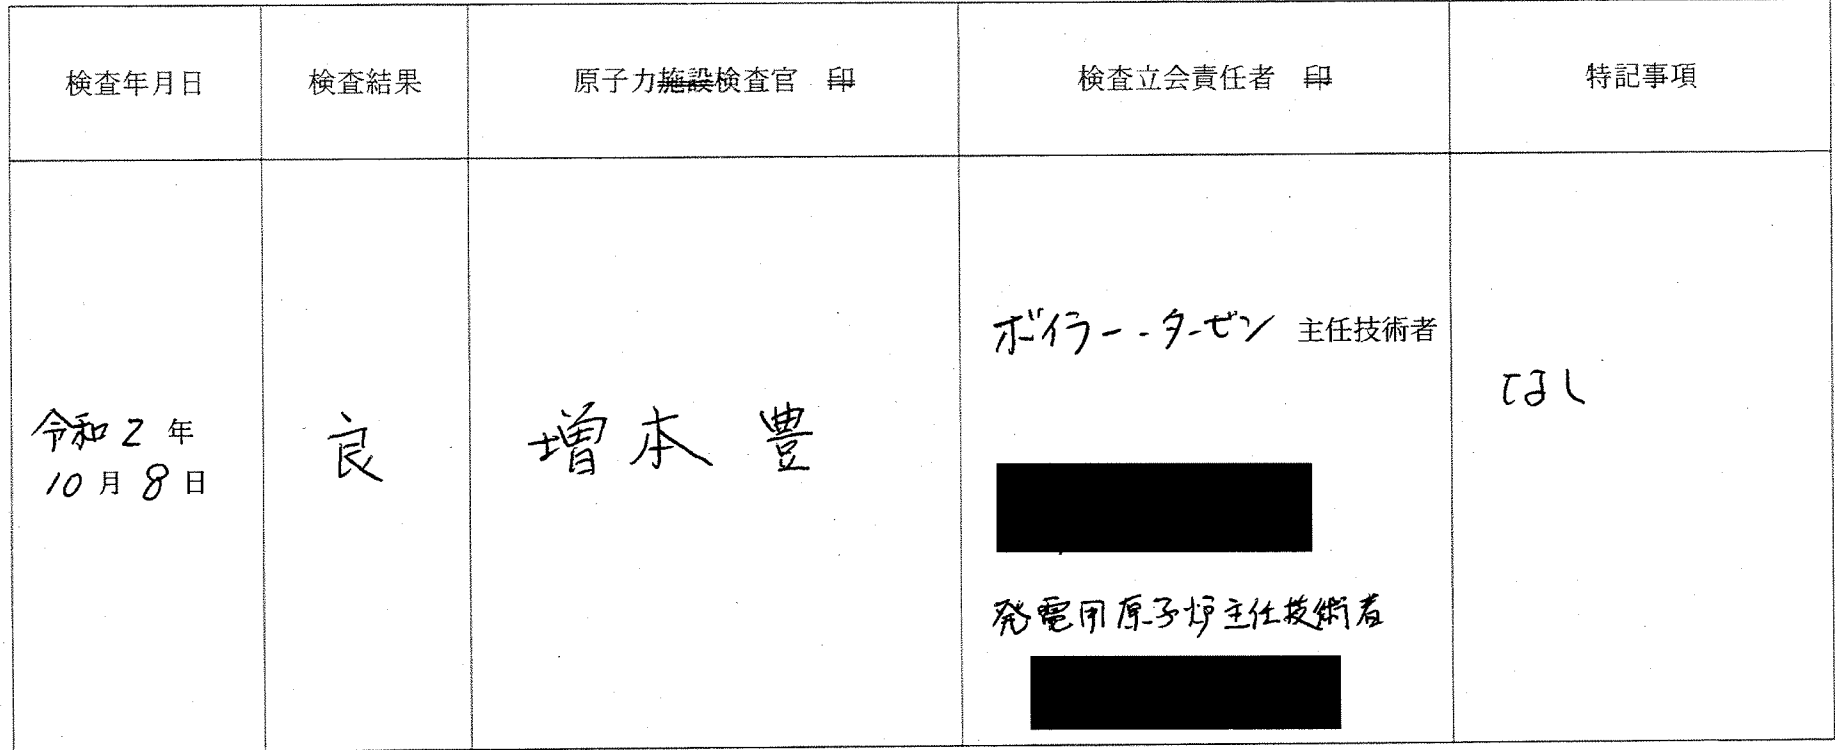 検査年月日
検査結果
原子力施設検査官 印
検査立会責任者 印
特記事項
令和2年
10月8日
良
増本 豊
ボイラー・タービン 主任技術者
発電用原子炉主任技術者
なし